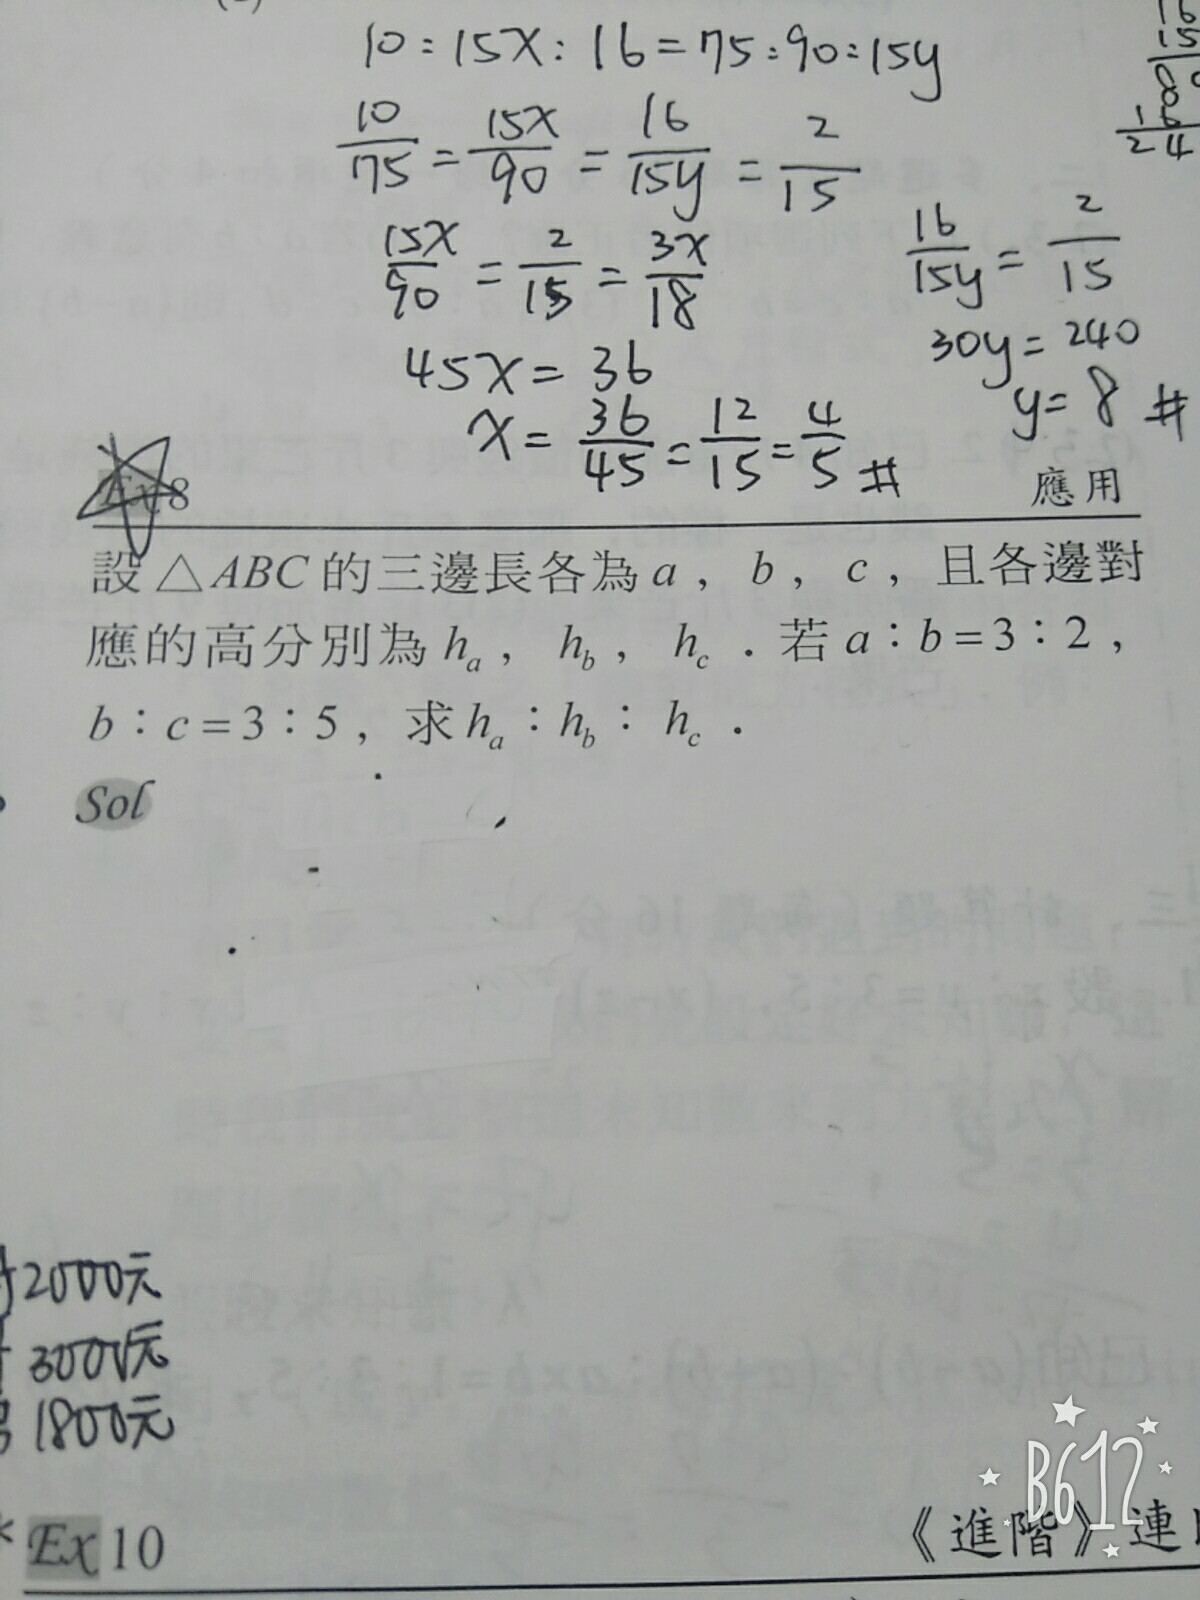 10:15x:16=75:90:15y
10/75=15x/90=16/15y=2/15
15x/90=2/15=3x/18
45x=36
x=36/45=12/15=4/5#
16
15
80
16
24
16/15y=2/15
30y=240
y=8#
Ex 8 應用
設△ABC的三邊長各為a,b,c,且各邊對
應的高分別為hₐ,h_b,h_c.若a:b=3:2,
b:c=3:5,求hₐ:h_b:h_c.
Sol
2000元
3000元
1800元
*Ex 10 《進階》連
B612